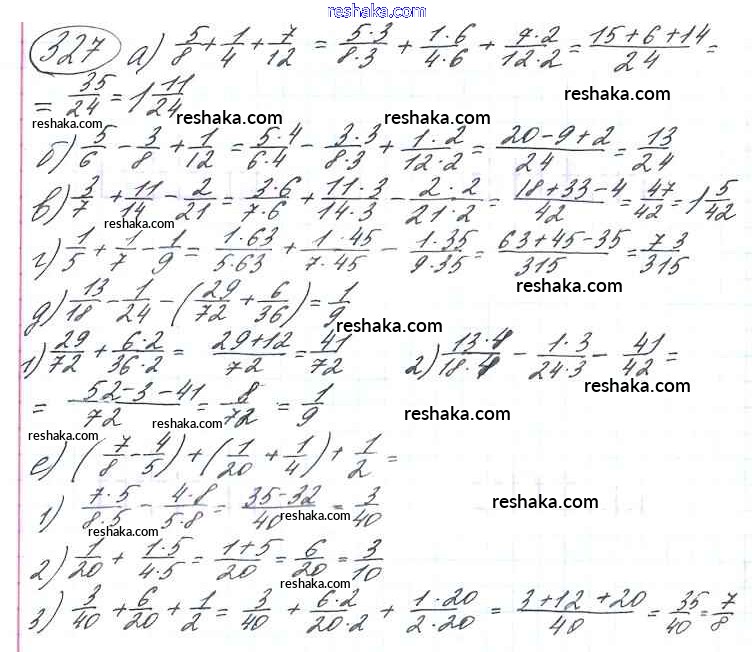 reshaka.com
327 а) 5/8 + 1/4 + 7/12 = 5·3/8·3 + 1·6/4·6 + 7·2/12·2 = 15+6+14/24 =
= 35/24 = 1 11/24 reshaka.com
reshaka.com reshaka.com reshaka.com
б) 5/6 - 3/8 + 1/12 = 5·4/6·4 - 3·3/8·3 + 1·2/12·2 = 20-9+2/24 = 13/24
в) 3/7 + 11/14 - 2/21 = 3·6/7·6 + 11·3/14·3 - 2·2/21·2 = 18+33-4/42 = 47/42 = 1 5/42
reshaka.com
г) 1/5 + 1/7 - 1/9 = 1·63/5·63 + 1·45/7·45 - 1·35/9·35 = 63+45-35/315 = 73/315
reshaka.com
д) 13/18 - 1/24 - (29/72 + 6/36) = 1/9
reshaka.com
1) 29/72 + 6·2/36·2 = 29+12/72 = 41/72 2) 13·4/18·4 - 1·3/24·3 - 41/42 =
reshaka.com
= 52-3-41/72 = 8/72 = 1/9 reshaka.com
reshaka.com reshaka.com
е) (7/8 - 4/5) + (1/20 + 1/4) + 1/2 =
1) 7·5/8·5 - 4·8/5·8 = 35-32/40 = 3/40 reshaka.com
reshaka.com reshaka.com
2) 1/20 + 1·5/4·5 = 1+5/20 = 6/20 = 3/10
reshaka.com reshaka.com
3) 3/40 + 6/20 + 1/2 = 3/40 + 6·2/20·2 + 1·20/2·20 = 3+12+20/40 = 35/40 = 7/8
reshaka.com